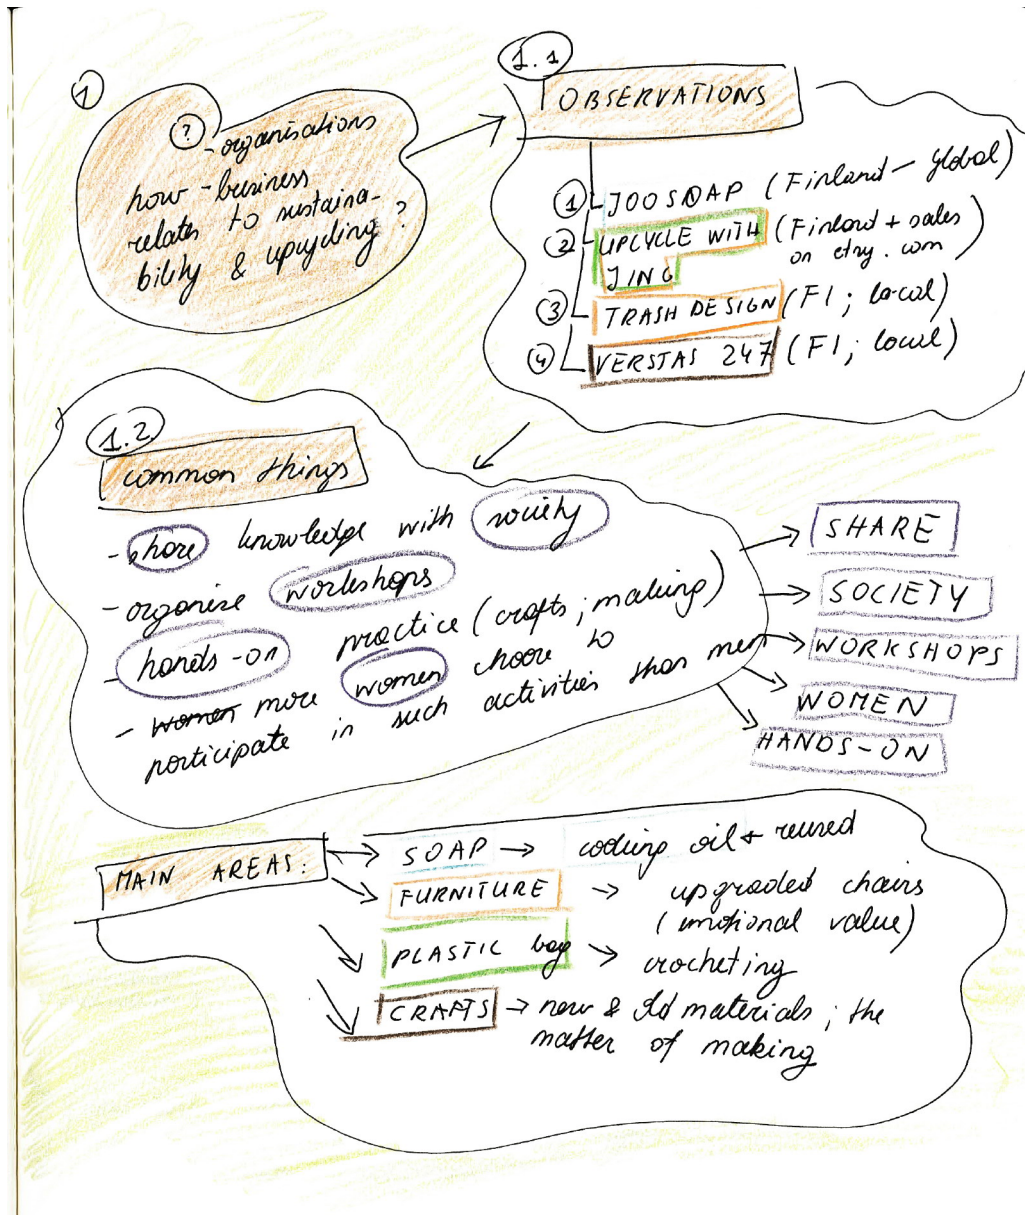 1
? - organisations
how - business
relates to sustaina-
bility & upcycling?
1.1
OBSERVATIONS
1 JOOSOAP (Finland - global)
2 UPCYCLE WITH (Finland + sales
JING on etsy.com)
3 TRASH DESIGN (FI; local)
4 VERSTAS 247 (FI; local)
1.2
common things
- share knowledge with society
- organise workshops
- hands-on practice (crafts; making)
- women more women choose to
participate in such activities than men
SHARE
SOCIETY
WORKSHOPS
WOMEN
HANDS-ON
MAIN AREAS:
SOAP → cooking oil + reused
FURNITURE → upgraded chairs
(emotional value)
PLASTIC bag → crocheting
CRAFTS → new & old materials; the
matter of making